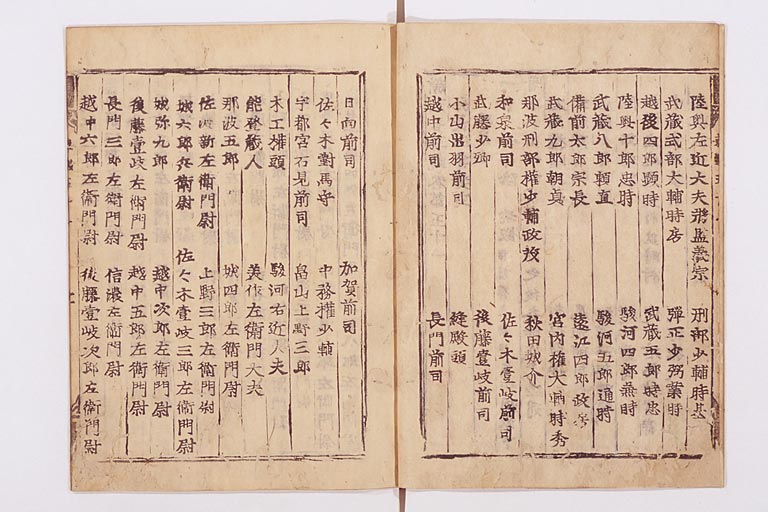 陸奥左近大夫将監義宗　刑部少輔時基
武蔵式部大輔時房　弾正少弼業時
越後四郎顕時　武蔵五郎時忠
陸奥十郎忠時　駿河四郎兼時
武蔵八郎頼直　駿河五郎通時
備前太郎宗長　遠江四郎政房
武蔵九郎朝貞　宮内権大輔時秀
那波刑部権少輔政茂　秋田城介
和泉前司　佐々木壹岐前司
武藤少卿　後藤壹岐前司
小山出羽前司　縫殿頭
越中前司　長門前司
日向前司　加賀前司
佐々木對馬守　中務権少輔
宇都宮石見前司　畠山上野三郎
木工権頭　駿河右近大夫
能登蔵人　美作左衛門大夫
那波五郎　城四郎左衛門尉
佐渡新左衛門尉　上野三郎左衛門尉
城六郎兵衛尉　佐々木壹岐三郎左衛門尉
城弥九郎　越中次郎左衛門尉
後藤壹岐左衛門尉　越中五郎左衛門尉
長門三郎左衛門尉　信濃左衛門尉
越中六郎左衛門尉　後藤壹岐次郎左衛門尉